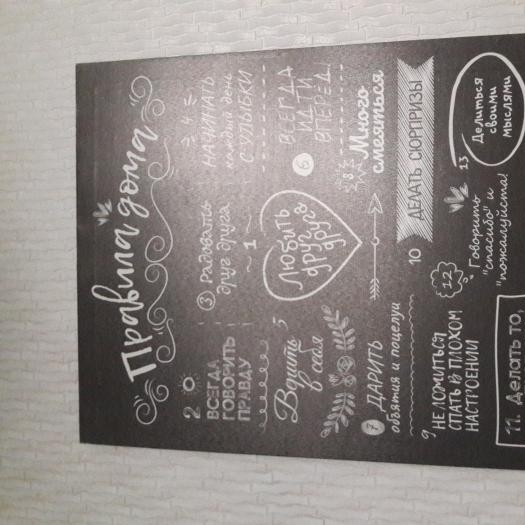 Правила дома
2
ВСЕГДА
ГОВОРИТЬ
ПРАВДУ
3 Радовать
друг друга
4
НАЧИНАТЬ
каждый день
С УЛЫБКИ
Верить 5
в себя
~ 1
Любить
друг
друга
6
ВСЕГДА
ИДТИ
ВПЕРЁД!
7 ДАРИТЬ
объятия и поцелуи
8 Много
смеяться
9 НЕ ЛОЖИТЬСЯ
СПАТЬ В ПЛОХОМ
НАСТРОЕНИИ
10 ДЕЛАТЬ СЮРПРИЗЫ
12 Говорить
"спасибо" и
"пожалуйста!
13 Делиться
своими
мыслями
11. Делать то,